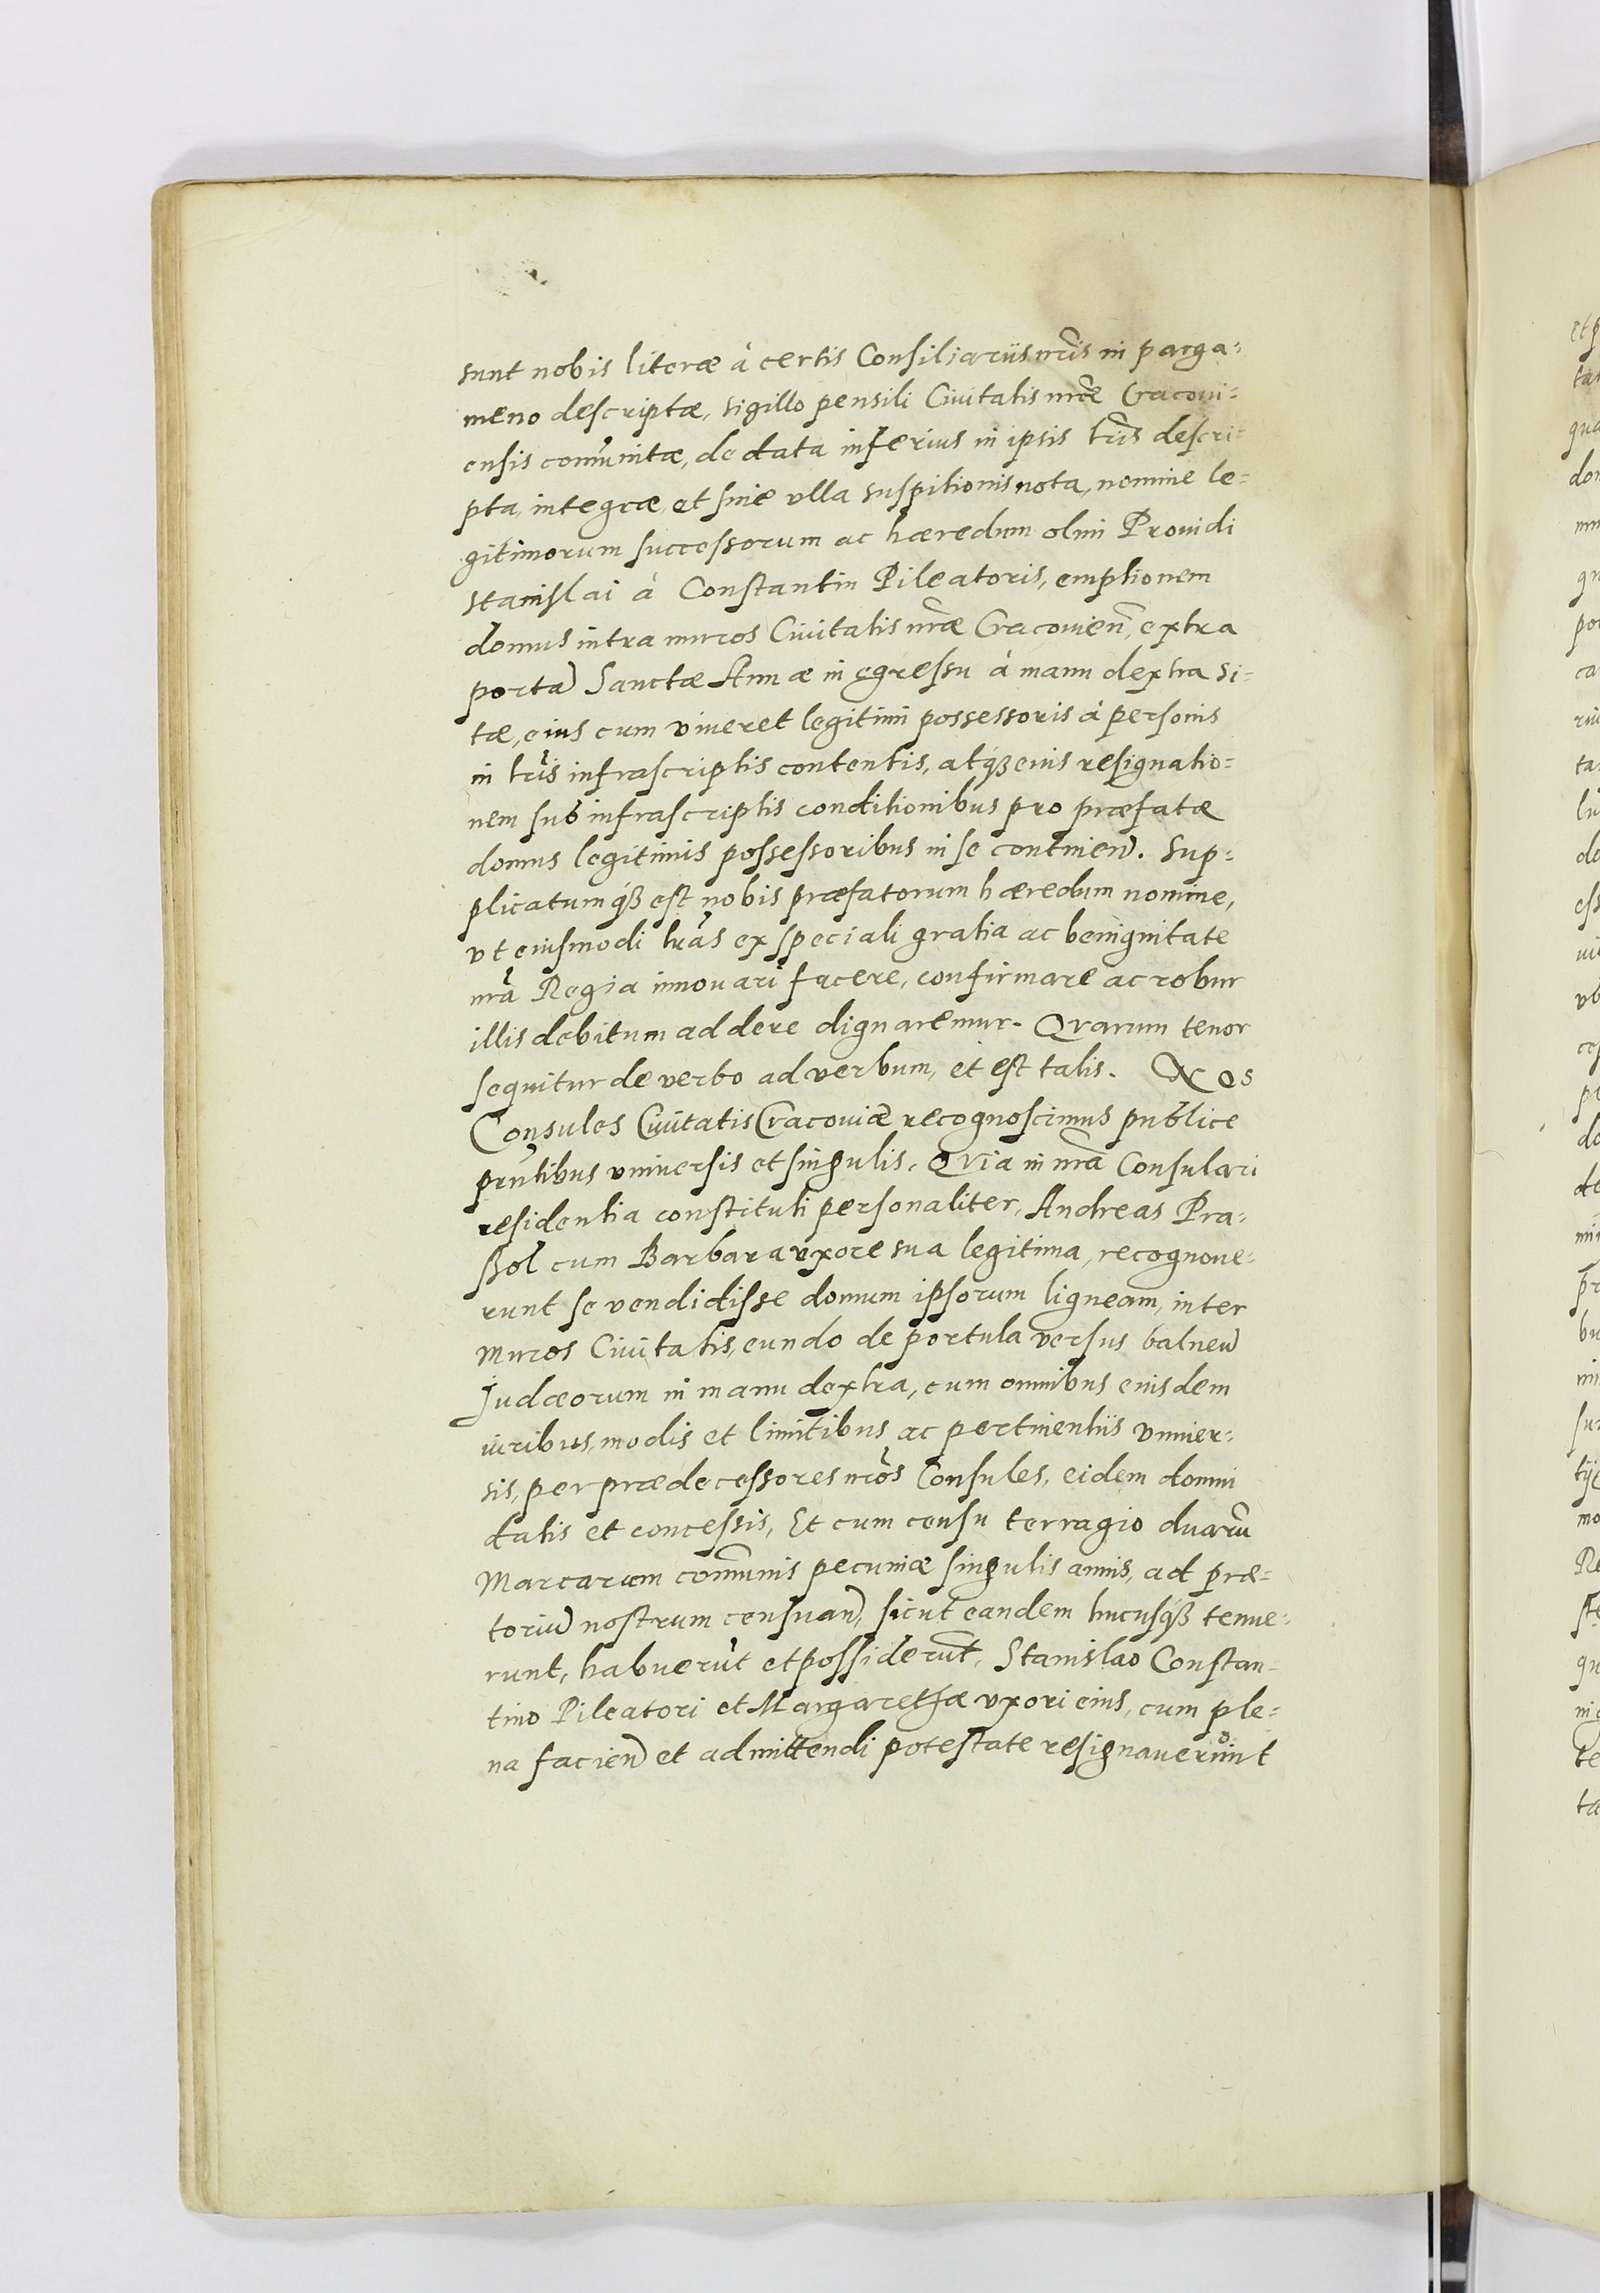 sunt nobis literæ à certis Consiliariis nr̃is in parga-
meno descriptæ, sigillo pensili Ciuitatis nr̃æ Cracoui-
ensis com̃unitæ, de data inferius in ipsis lr̃is descri-
pta, integræ, et sine vlla suspitionis nota, nomine le-
gitimorum successorum ac hæredum olim Prouidi
Stanislai à Constantin Pileatoris, emptionem
domus intra muros Ciuitatis nr̃æ Cracouien̄, extra
portā Sanctæ Annæ in egressu à manu dextra si-
tæ, eius cum viueret legitimi possessoris à personis
in lr̃is infrascriptis contentis, atq́ꝫ eius resignatio-
nem sub infrascriptis conditionibus pro præfatæ
domus legitimis possessoribus in se continen̄. Sup-
plicatumq́ꝫ est nobis præfatorum hæredum nomine,
vt eiusmodi lr̃as ex speciali gratia ac benignitate
nr̃a Regia innouari facere, confirmare ac robur
illis debitum addere dignaremur. Qvarum tenor
sequitur de verbo ad verbum, et est talis. Nos
Consules Ciuitatis Cracouiæ recognoscimus publice
pr̃ntibus vniuersis et singulis. Qvia in nr̃a Consulari
residentia constituti personaliter, Andreas Pra-
ßol cum Barbara vxore sua legitima, recognoue-
runt se vendidisse domum ipsorum ligneam, inter
muros Ciuitatis, eundo de portula versus balneū
Judæorum in manu dextra, cum omnibus eiusdem
iuribus, modis et limitibus ac pertinentiis vniuer-
sis, per prædecessores nr̃os Consules, eidem domui
datis et concessis, Et cum censu terragio duarū
Marcarum com̃unis pecuniæ singulis annis, ad præ-
toriū nostrum censuan̄, sicut eandem hucusq́ꝫ tenue-
runt, habuerūt et possiderūt, Stanislao Constan-
tino Pileatori et Margarethæ vxori eius, cum ple-
na facien̄ et admittendi potestate resignauerunt